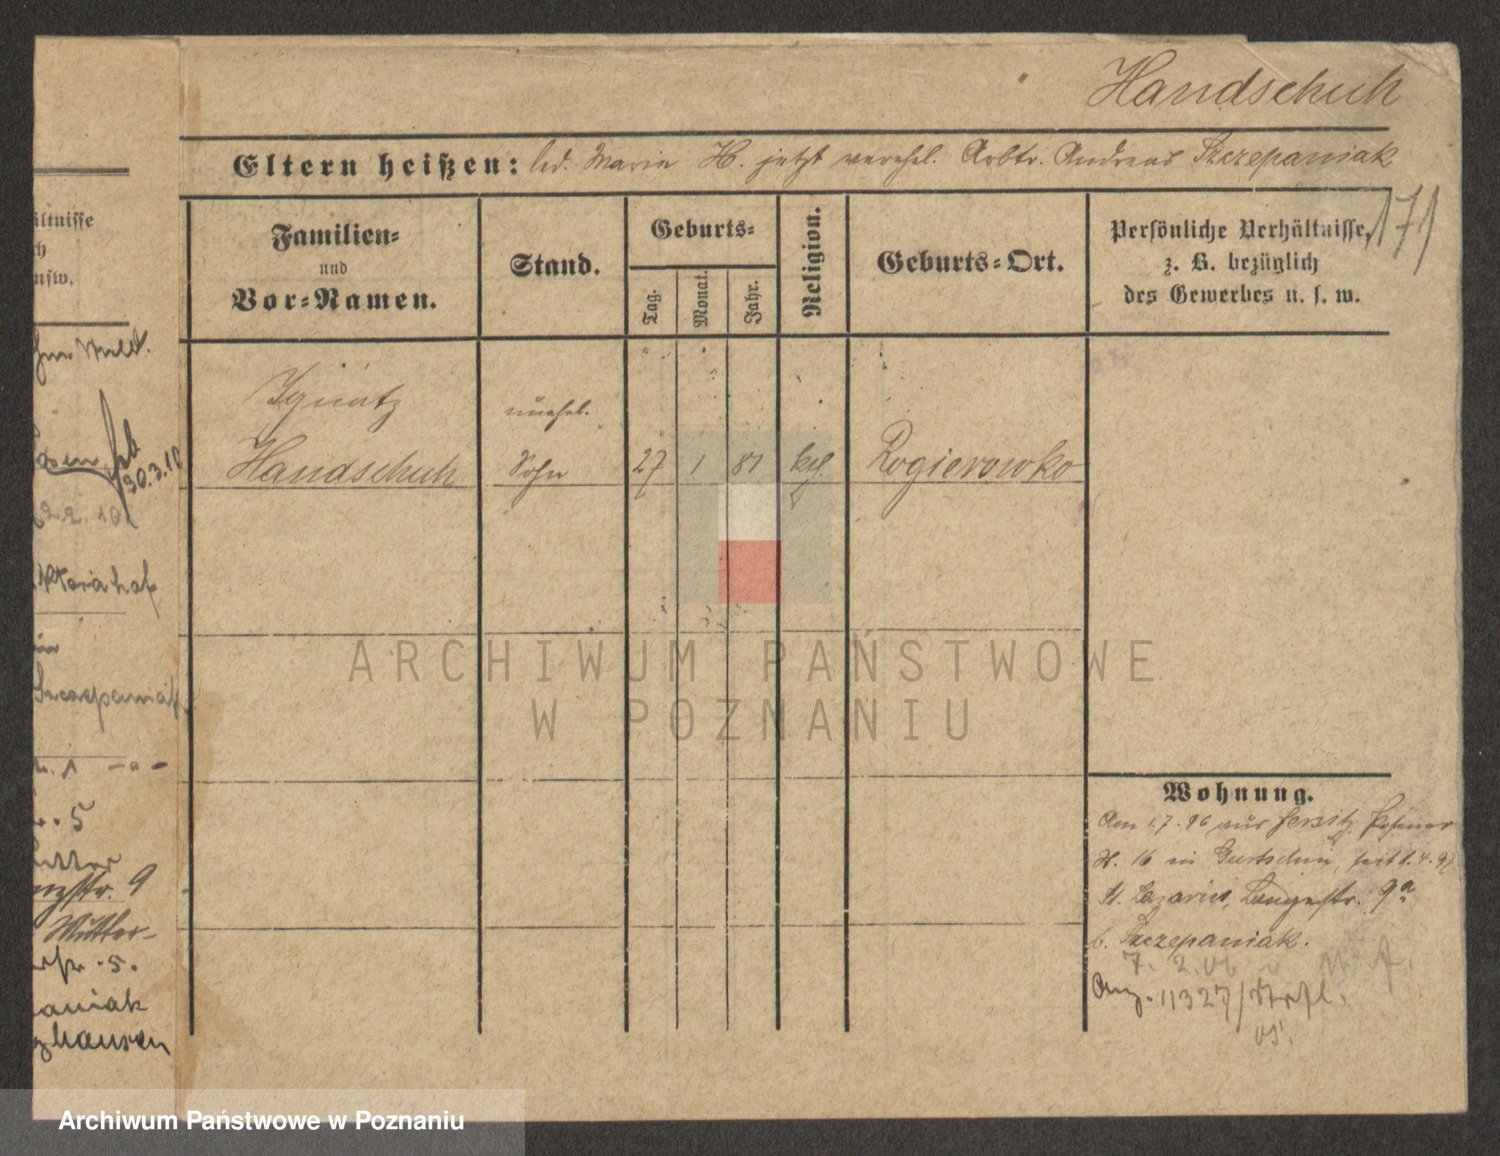 Handschuh
Eltern heißen: led. Marie H. jetzt verehel. Arbtr. Andreas Szczepaniak
171
Familien=
und
Vor=Namen.
Stand.
Geburts=
Tag.
Monat.
Jahr.
Religion.
Geburts=Ort.
Persönliche Verhältnisse,
z. B. bezüglich
des Gewerbes u. s. w.
Ignatz
Handschuh
unehel.
Sohn
27
1
81
kath.
Rogierowko
Wohnung.
Am 1.7.96 aus Jersitz, Posener
16 in Gurtschin, seit 1.4.97
St. Lazarus, Langestr. 9a
b. Szczepaniak.
7. 2. 06
Anz. 11327
05.
ältnisse
ch
usw.
30.3.10
2.2.10
Szczepaniak
5
9
Mutter-
5.
aniak
hausen
ARCHIWUM PAŃSTWOWE
W POZNANIU
Archiwum Państwowe w Poznaniu